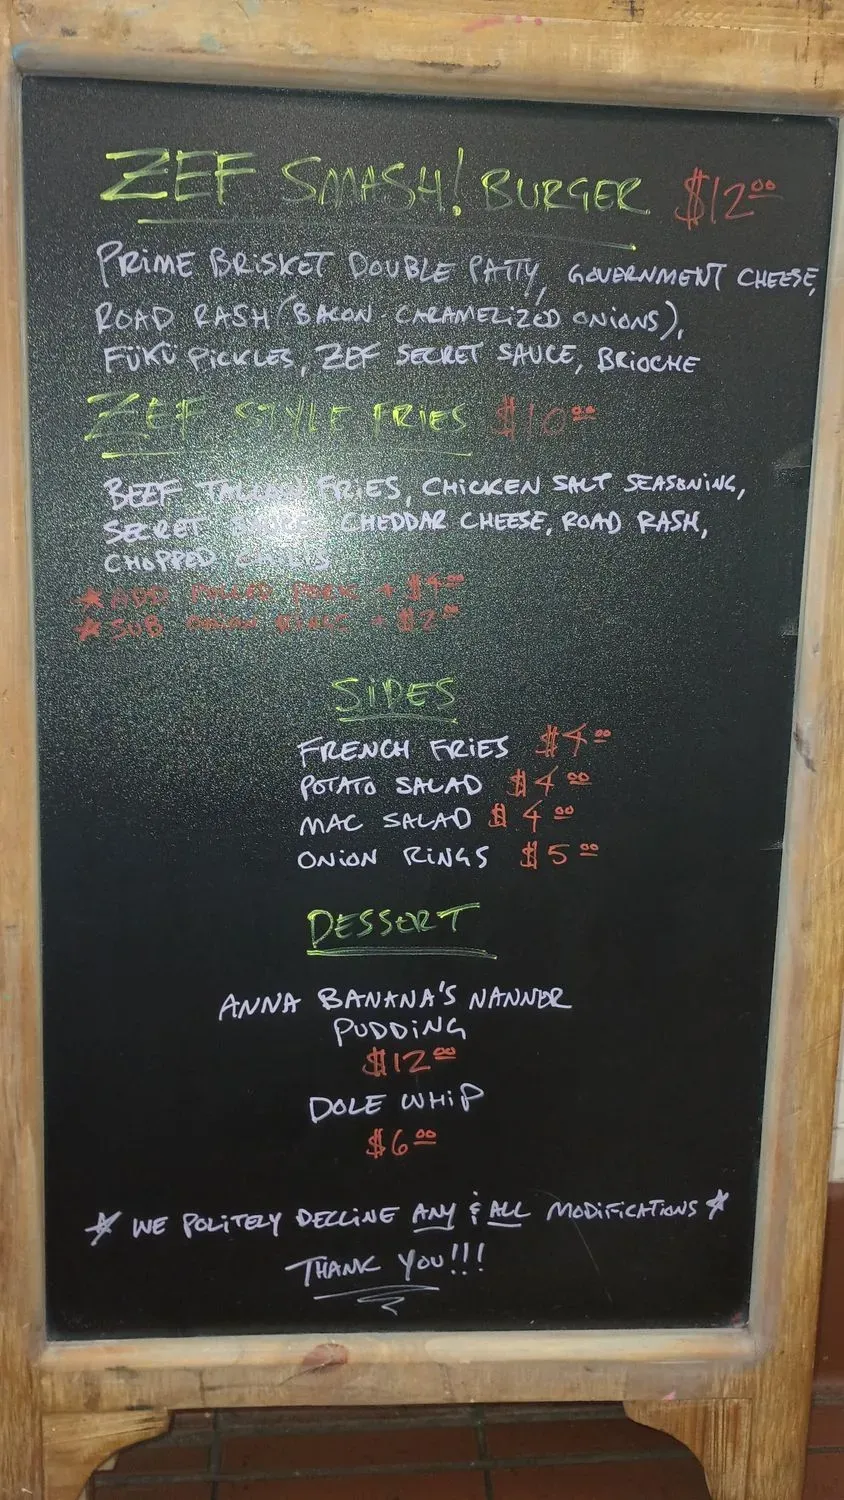 ZEF SMASH! BURGER $12.00
PRIME BRISKET DOUBLE PATTY, GOVERNMENT CHEESE,
ROAD RASH (BACON CARAMELIZED ONIONS),
FÜKÜ PICKLES, ZEF SECRET SAUCE, BRIOCHE
ZEF STYLE FRIES $10.00
BEEF TALLOW FRIES, CHICKEN SALT SEASONING,
SECRET SAUCE, CHEDDAR CHEESE, ROAD RASH,
CHOPPED
★ ADD PULLED PORK + $4.00
★ SUB ONION RINGS + $2.00
SIDES
FRENCH FRIES $4.00
POTATO SALAD $4.00
MAC SALAD $4.00
ONION RINGS $5.00
DESSERT
ANNA BANANA'S NANNER
PUDDING
$12.00
DOLE WHIP
$6.00
★ WE POLITELY DECLINE ANY & ALL MODIFICATIONS ★
THANK YOU!!!